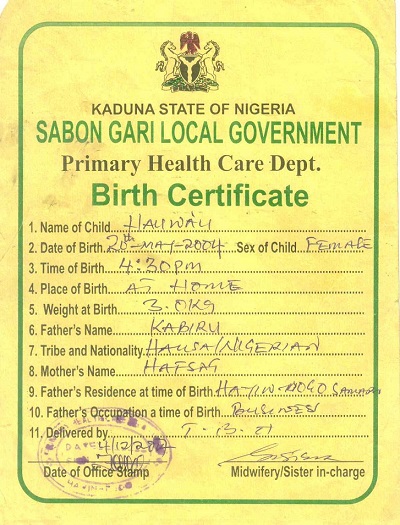 KADUNA STATE OF NIGERIA
SABON GARI LOCAL GOVERNMENT
Primary Health Care Dept.
Birth Certificate
1. Name of Child HAUWAU
2. Date of Birth 20th-MAY-2004 Sex of Child FEMALE
3. Time of Birth 4:30PM
4. Place of Birth AT HOME
5. Weight at Birth 3.0KG
6. Father's Name KABIRU
7. Tribe and Nationality HAUSA/NIGERIAN
8. Mother's Name HAFSAT
9. Father's Residence at time of Birth HAYIN-DOGO SAMARU
10. Father's Occupation a time of Birth BUSINESS
11. Delivered by
DATE 4/12/
Date of Office Stamp Midwifery/Sister in-charge